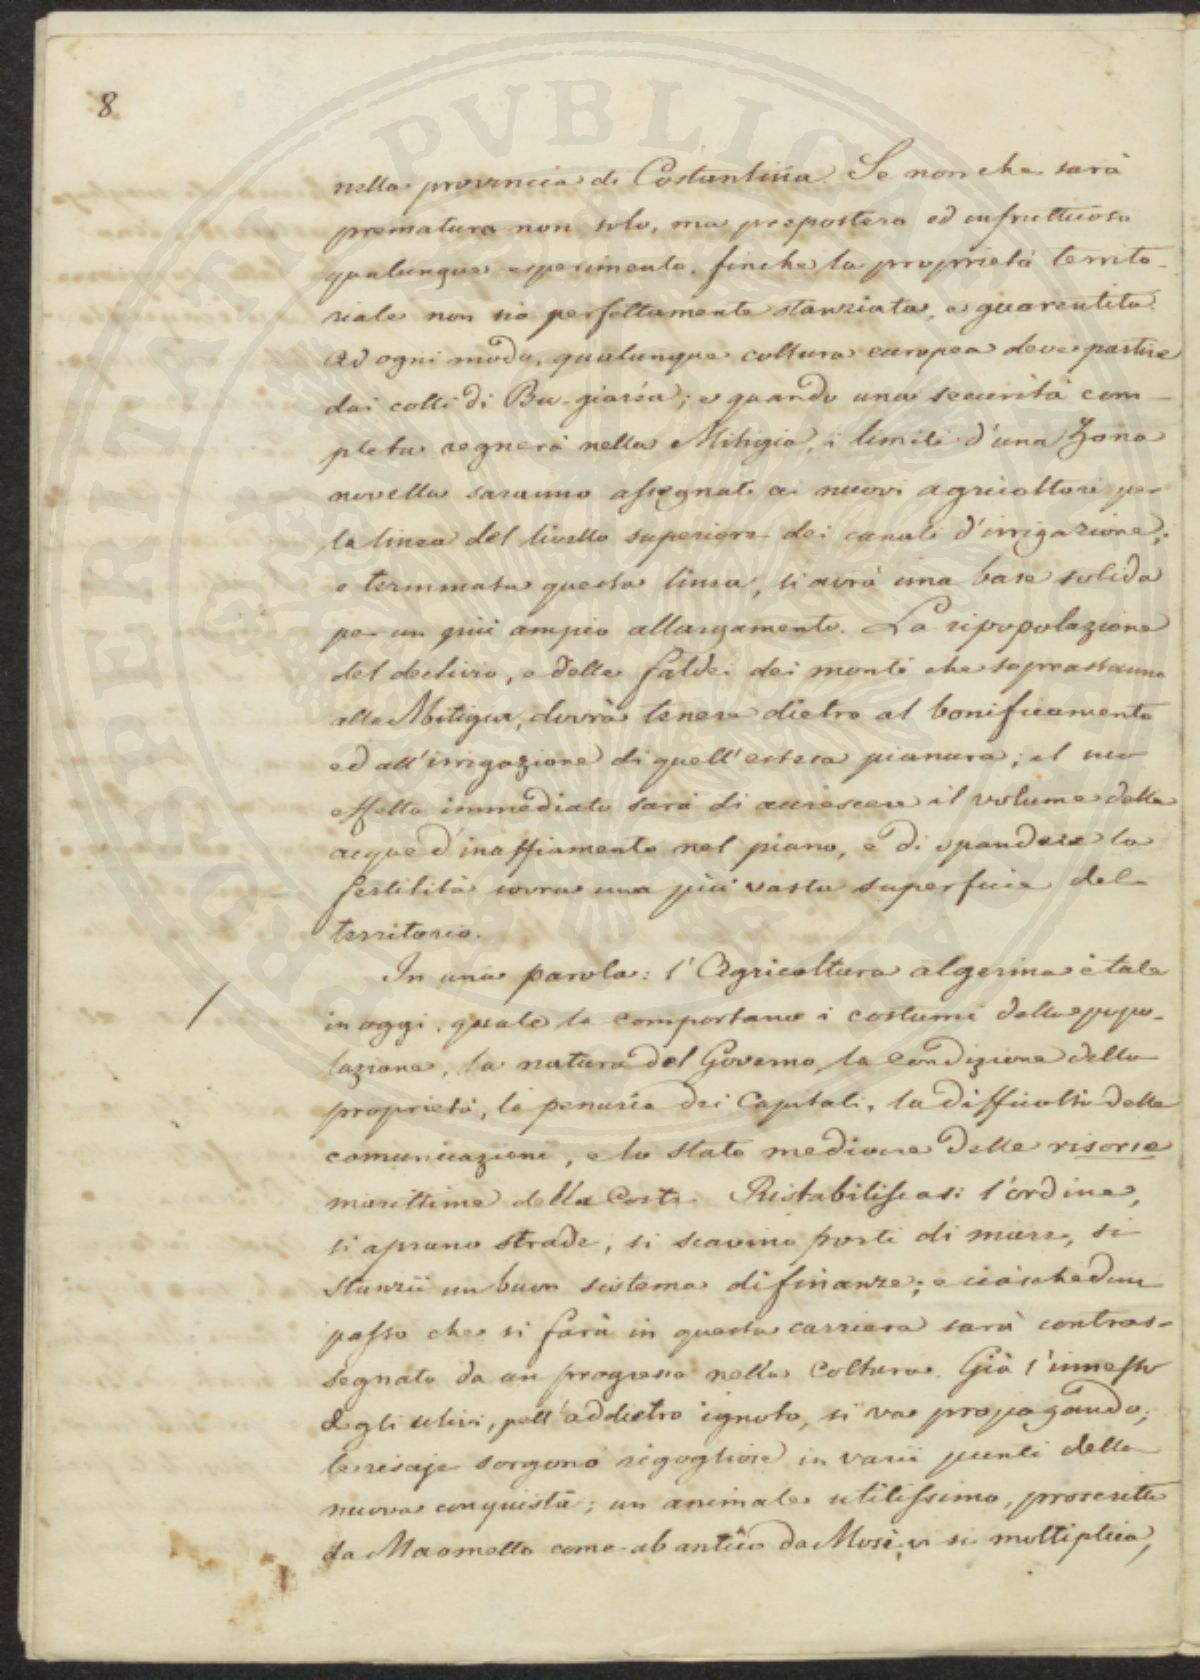 8
nella provincia di Costantina. Se non che sarà
prematura non solo, ma prepostera ed infruttuosa
qualunque esperimento, finche la proprietà territo-
riale non sia perfettamente stanziata, e guarentita.
Ad ogni modo, qualunque coltura europea deve partire
dai colli di Bu-giaréa; e quando una securità com-
pleta regnerà nella Mitigia, i limiti d'una Zona
novella saranno assegnati ai nuovi agricoltori per
la linea del livello superiore dei canali d'irrigazione;
e terminata questa linea, si avrà una base solida
per un più ampio allargamento. La ripopolazione
del declivio, e delle falde dei monti che soprastanno
alla Mitigia, dovrà tenere dietro al bonificamento
ed all'irrigazione di quell'estesa pianura; il suo
effetto immediato sarà di accrescere il volume delle
acque d'inaffiamento nel piano, e di spandere la
fertilità sovra una più vasta superficie del
territorio.
In una parola: l'Agricoltura algerina è tale
in oggi, quale la comportano i costumi della popo-
lazione, la natura del Governo, la Condizione della
proprietà, la penuria dei Capitali, la difficoltà delle
comunicazioni, e lo stato mediocre delle risorse
marittime della Costa. Ristabiliscasi l'ordine,
si aprano strade, si scavino porti di mare, si
stanzii un buon sistema di finanze; e ciaschedun
passo che si farà in questa carriera sarà contras-
segnato da un progresso nella Coltura. Già l'innesto
degli ulivi, pell'addietro ignoto, si va propagando;
le risaje sorgono rigogliose in varii punti della
nuova conquista; un animale utilissimo, proscritto
da Maometto come ab antico da Mosè, vi si moltiplica,
PROSPERITATI PVBLICAE